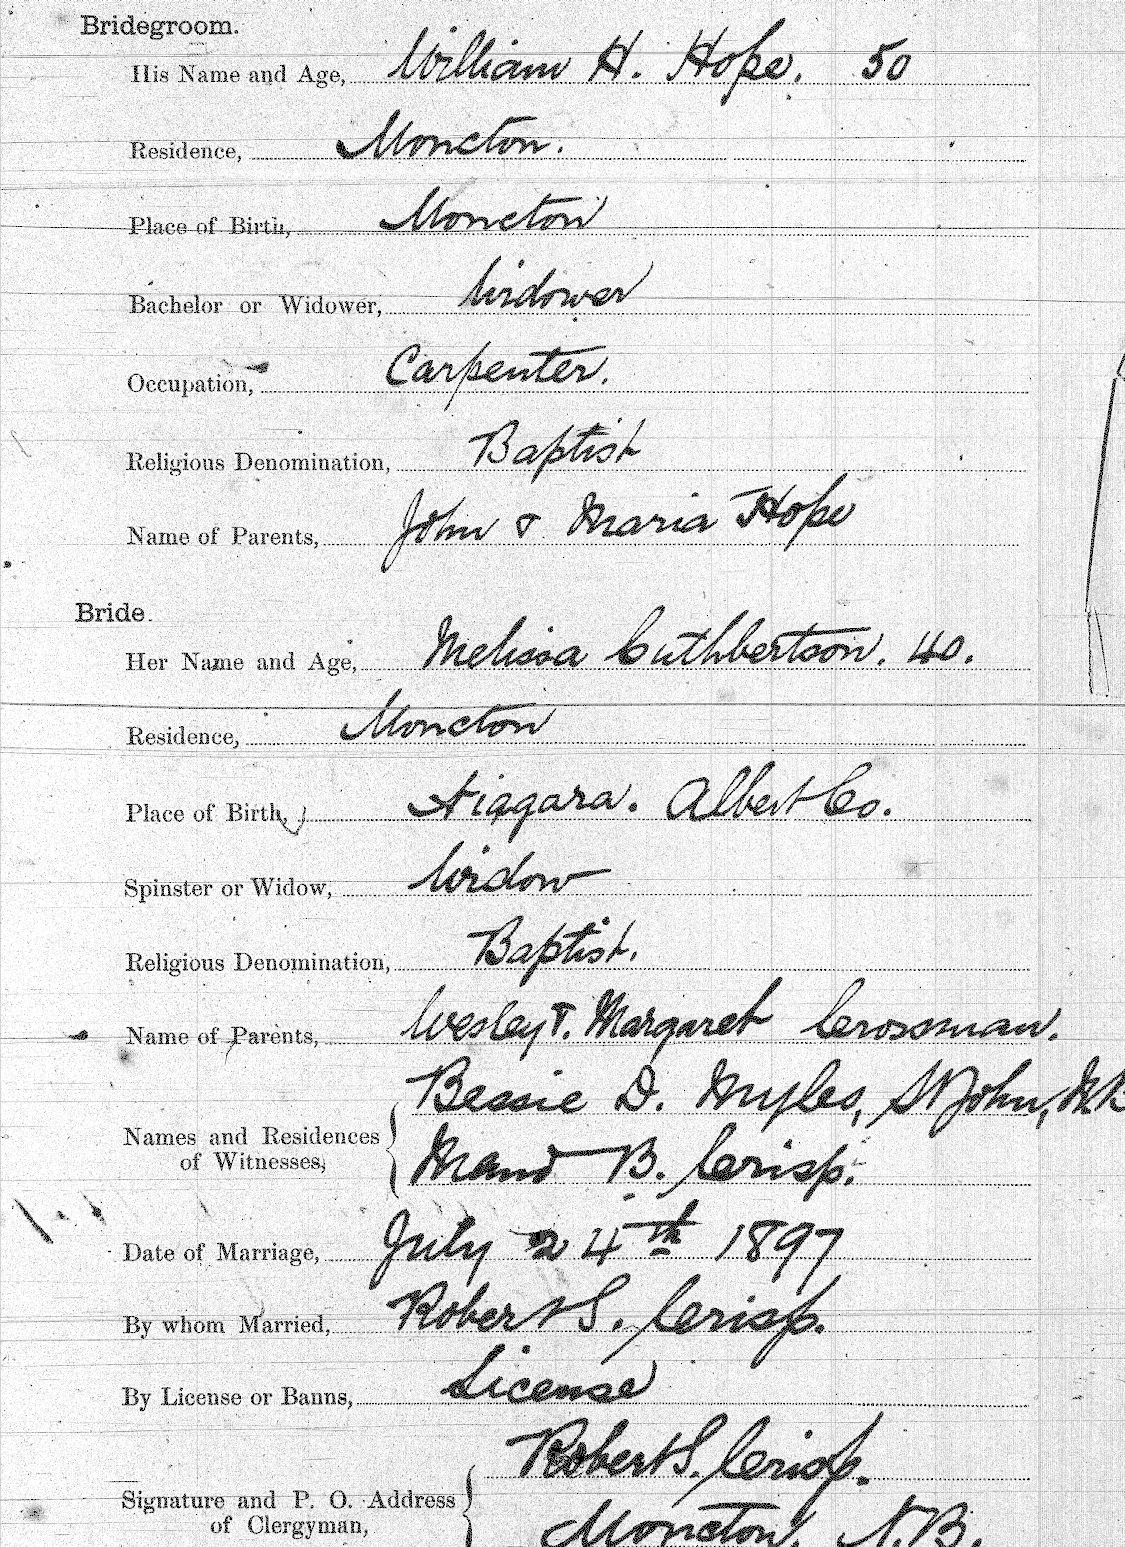 Bridegroom.
His Name and Age, William H. Hope. 50
Residence, Moncton.
Place of Birth, Moncton
Bachelor or Widower, Widower
Occupation, Carpenter.
Religious Denomination, Baptist
Name of Parents, John & Maria Hope
Bride.
Her Name and Age, Melissa Cuthbertson. 40.
Residence, Moncton
Place of Birth, Niagara. Albert Co.
Spinster or Widow, Widow
Religious Denomination, Baptist.
Name of Parents, Wesley & Margaret Crossman.
Bessie D. Myles, St John, NB
Names and Residences
of Witnesses,
Maud B. Crisp.
Date of Marriage, July 24th 1897
By whom Married, Robert S. Crisp.
By License or Banns, License
Robert S. Crisp.
Signature and P. O. Address
of Clergyman,
Moncton, N.B.